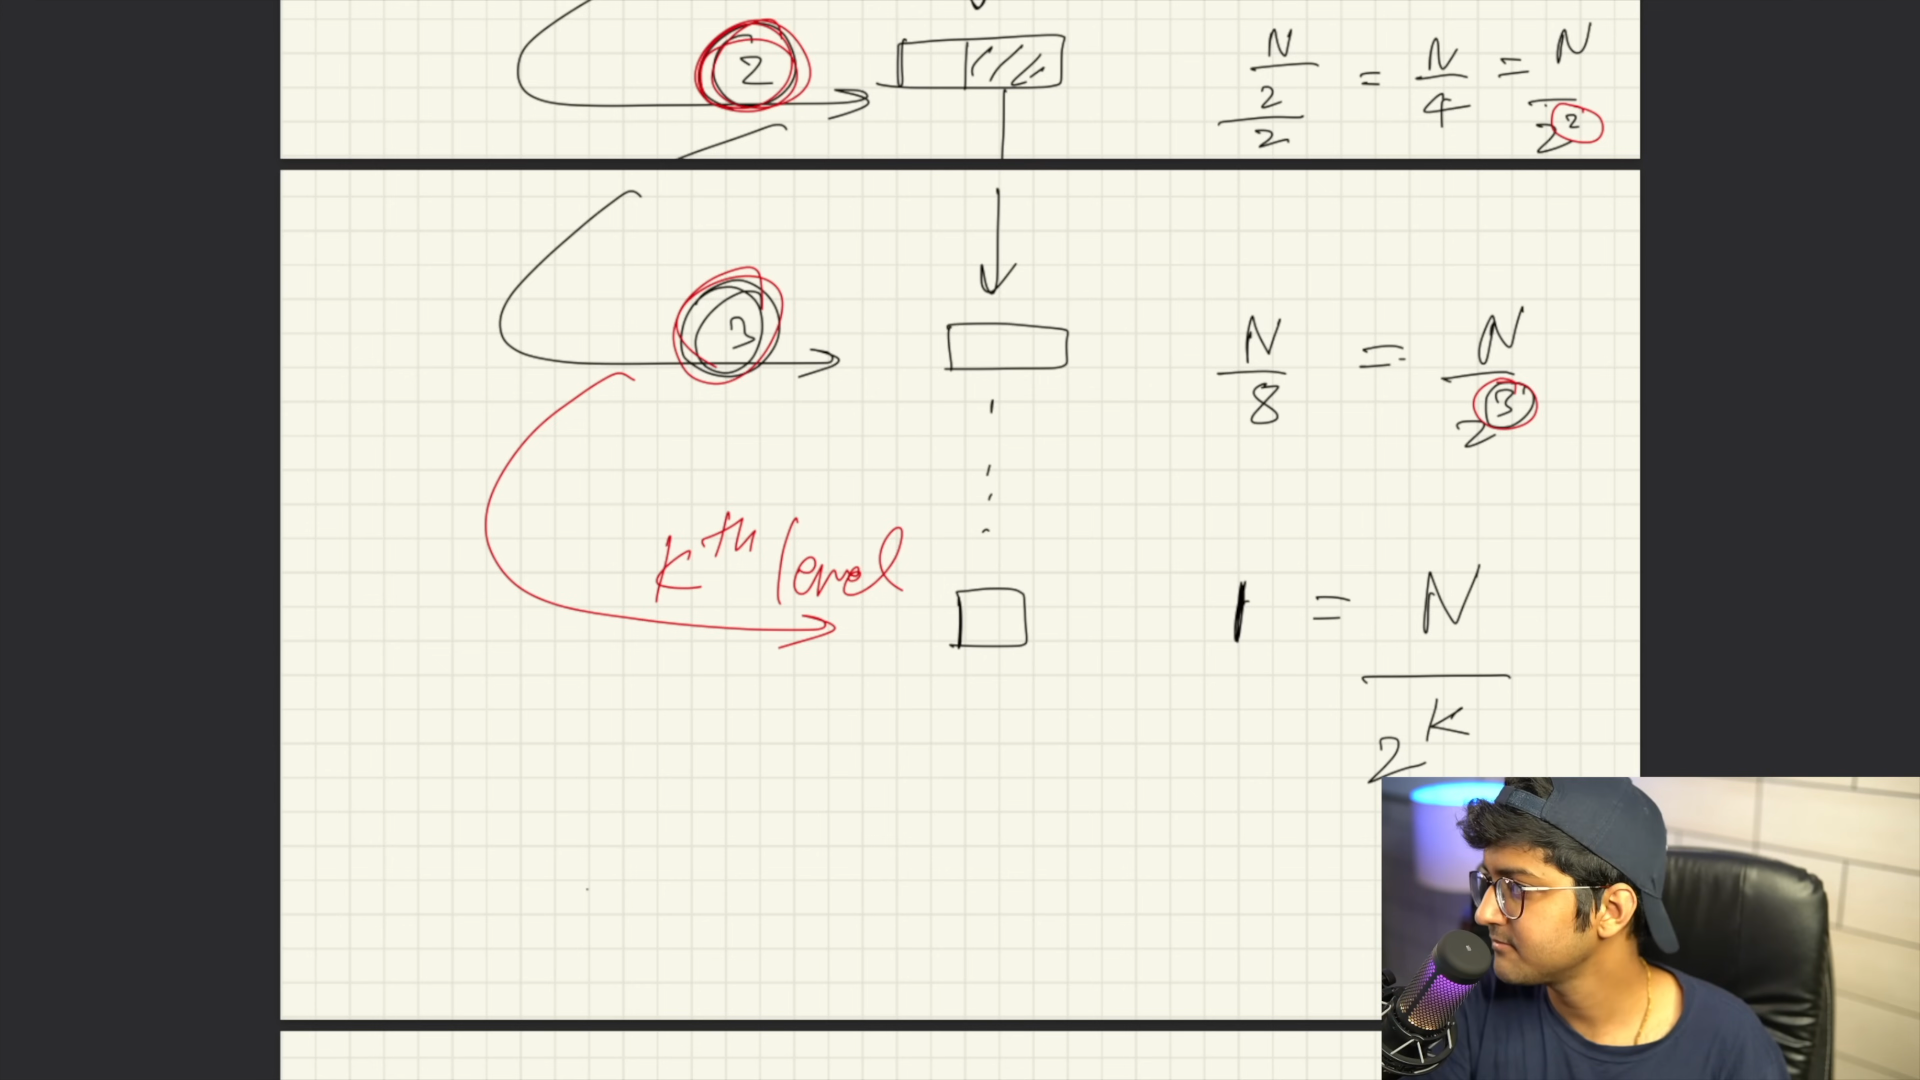 2 N/2/2 = N/4 = N/2²
3 N/8 = N/2³
Kth level 1 = N/2^K